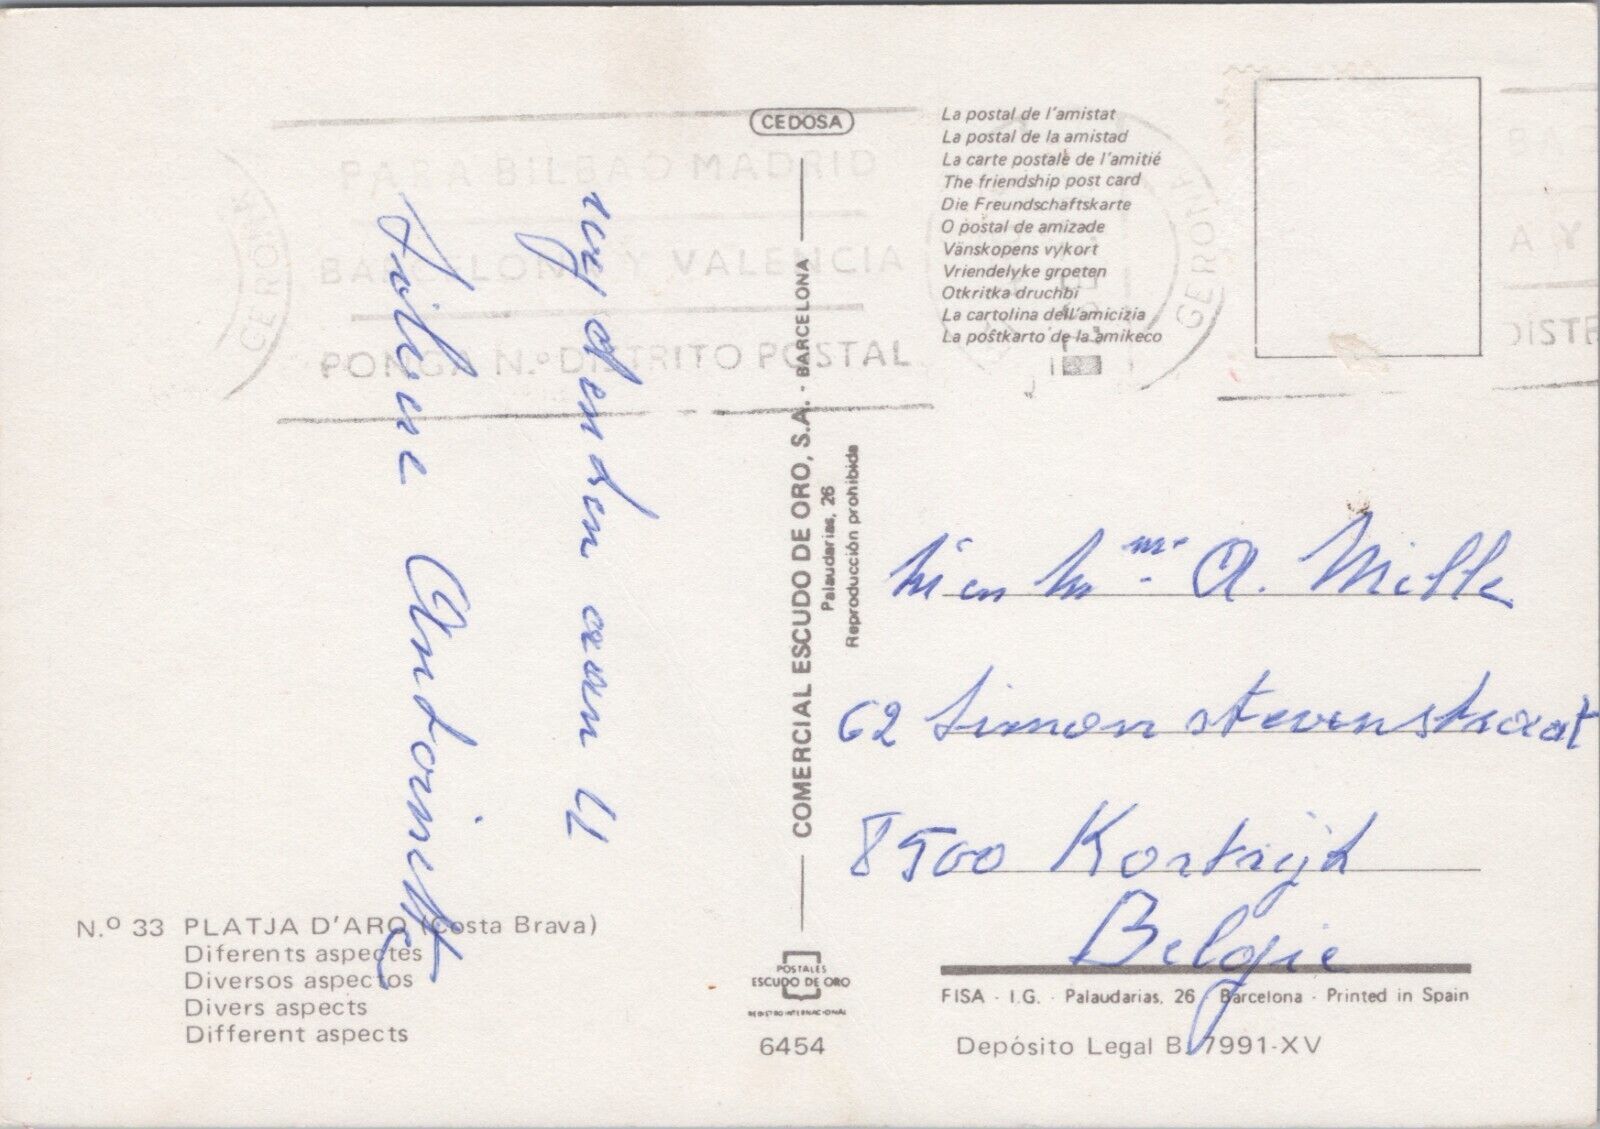 wij denken aan U
Andoinette
CEDOSA
COMERCIAL ESCUDO DE ORO, S.A. - BARCELONA
Palaudarias, 26
Reproducción prohibida
POSTALES
ESCUDO DE ORO
REGISTRO INTERNACIONAL
6454
N.º 33 PLATJA D'ARO (Costa Brava)
Diferents aspectes
Diversos aspectos
Divers aspects
Different aspects
PARA BILBAO MADRID
BARCELONA Y VALENCIA
PONGA N.º DISTRITO POSTAL
GERONA
La postal de l'amistat
La postal de la amistad
La carte postale de l'amitié
The friendship post card
Die Freundschaftskarte
O postal de amizade
Vänskopens vykort
Vriendelyke groeten
Otkritka druchbi
La cartolina dell'amicizia
La poŝtkarto de la amikeco
GERONA
A Y
DISTR
A. Mille
62 Simon stevenstraat
8500 Kortrijk
Belgie
FISA - I.G. - Palaudarias, 26 - Barcelona - Printed in Spain
Depósito Legal B. 7991-XV